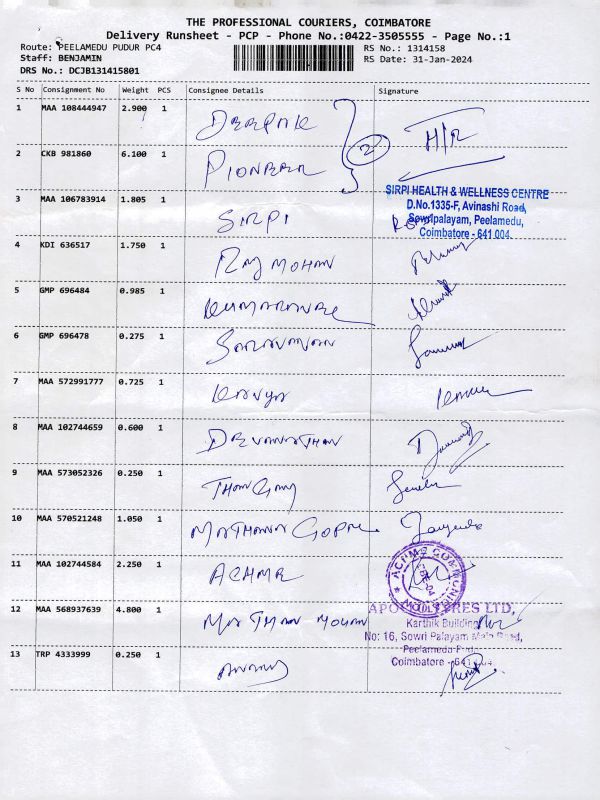 THE PROFESSIONAL COURIERS, COIMBATORE
Delivery Runsheet - PCP - Phone No.:0422-3505555 - Page No.:1
Route: PEELAMEDU PUDUR PC4 RS No.: 1314158
Staff: BENJAMIN RS Date: 31-Jan-2024
DRS No.: DCJB131415801
S No Consignment No Weight PCS Consignee Details Signature
1 MAA 108444947 2.900 1 DEEPAK H/R
2
2 CKB 981860 6.100 1 PIONEER
SIRPI HEALTH & WELLNESS CENTRE
3 MAA 106783914 1.805 1 SIRPI D.No.1335-F, Avinashi Road,
Sowripalayam, Peelamedu,
Coimbatore - 641 004.
4 KDI 636517 1.750 1 RAJ MOHAN
5 GMP 696484 0.985 1
6 GMP 696478 0.275 1 SARAVANAN
7 MAA 572991777 0.725 1 KAVYA
8 MAA 102744659 0.600 1 DEVANATHAN
9 MAA 573052326 0.250 1
10 MAA 570521248 1.050 1
11 MAA 102744584 2.250 1 ACHME
12 MAA 568937639 4.800 1 MATHAN MOHAN
APOLLO TYRES LTD,
Karthik Building
No: 16, Sowri Palayam Main Road,
Coimbatore - 641 004
13 TRP 4333999 0.250 1